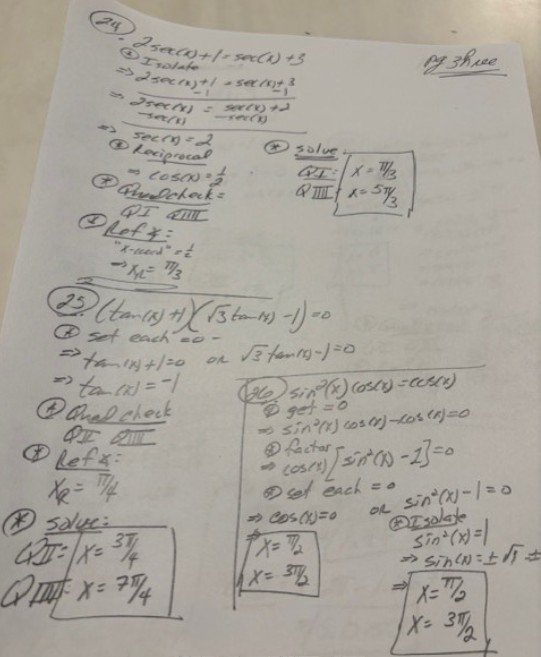 pg three
24
2sec(x)+1=sec(x)+3
* Isolate
⇒ 2sec(x)+1 = sec(x)+3
-1 -1
⇒ 2sec(x) = sec(x)+2
-sec(x) -sec(x)
⇒ sec(x)=2
* Reciprocal
⇒ cos(x)=1/2
* Quad check=
QI QIIII
* Ref ∡:
"x-coord"=1/2
⇒ x_R = π/3
* solve:
QI: x=π/3
QIIII: x=5π/3
25. (tan(x)+1)(√3tan(x)-1)=0
* set each =0-
⇒ tan(x)+1=0 OR √3tan(x)-1=0
⇒ tan(x)=-1
* Quad check
QII QIIII
* Ref ∡:
x_R = π/4
* solve:
QII: x=3π/4
QIIII: x=7π/4
26 sin²(x)cos(x)=cos(x)
* get =0
⇒ sin²(x)cos(x)-cos(x)=0
* factor
⇒ cos(x)[sin²(x)-1]=0
* set each =0
⇒ cos(x)=0 OR sin²(x)-1=0
⇒ x=π/2
x=3π/2
* Isolate
sin²(x)=1
⇒ sin(x)=±√1 ±
⇒ x=π/2
x=3π/2